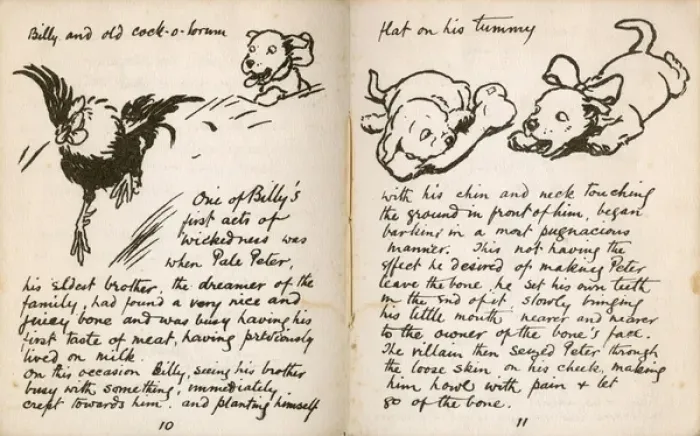 Billy and old cock-o-lorum
One of Billy's
first acts of
wickedness was
when Pale Peter,
his eldest brother, the dreamer of the
family, had found a very nice and
juicy bone and was busy having his
first taste of meat, having previously
lived on milk.
On this occasion Billy, seeing his brother
busy with something, immediately
crept towards him, and planting himself
10
flat on his tummy
with his chin and neck touching
the ground in front of him, began
barking in a most pugnacious
manner. This not having the
effect he desired of making Peter
leave the bone, he set his own teeth
in the end of it, slowly bringing
his little mouth nearer and nearer
to the owner of the bone's face.
The villain then seized Peter through
the loose skin on his cheek, making
him howl with pain & let
go of the bone.
11